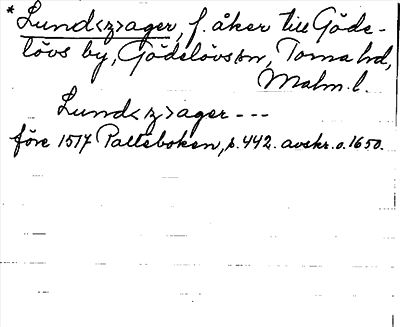 * Lund<z>ager, f. åker till Göde-
lövs by, Gödelövs sn, Torna hd,
Malm. l.
Lund<z>ager ---
före 1517 Palteboken, s. 442. avskr. o. 1650.